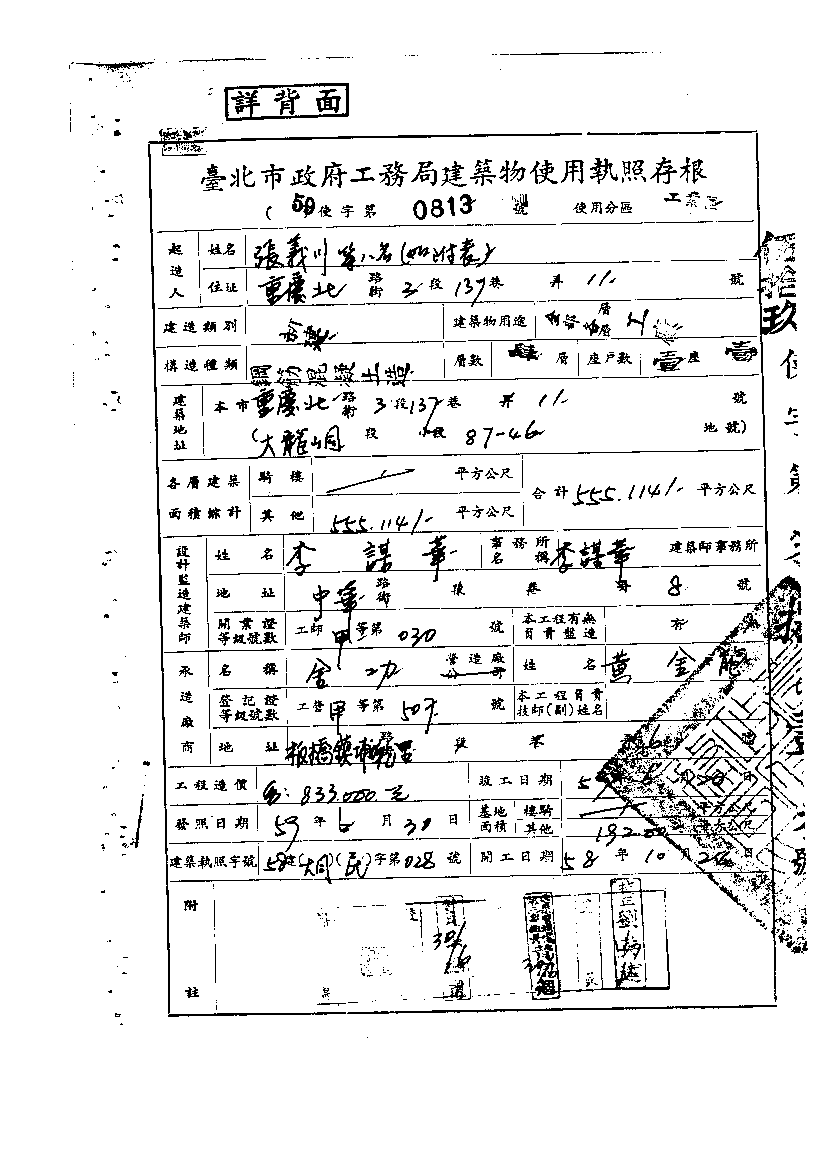 詳背面
臺北市政府工務局建築物使用執照存根
(59使字第 0813 號 使用分區 工業區
起造人 姓名 張義川等八名(如附表)
住址 重慶北 路街 3 段 137 巷 弄 11 號
建造類別 新建 建築物用途
構造種類 鋼筋混凝土造 層數 肆 層 座戶數 壹座 壹
建築地址 本市 重慶北 路街 3 段 137 巷 弄 11 號
(大龍峒 段 小段 87-46 地號)
各層建築面積綜計 騎樓 平方公尺 合計 555.114 平方公尺
其他 555.114 平方公尺
設計監造建築師 姓名 李謀華 事務所名稱 李謀華 建築師事務所
地址 中華 路街 段 巷 8 號
開業證等級號數 工師 甲 等第 030 號 本工程有無負責監造 有
承造廠商 名稱 金功 營造廠公司 姓名 黃金
登記證等級號數 工營 甲 等第 507 號 本工程負責技師(副)姓名
地址 板橋鎮埔墘里 路 段 巷 號
工程造價 833.000元 竣工日期 59 年 6 月 20 日
發照日期 59 年 6 月 30 日 基地面積 騎樓 平方公尺
其他 192.00 平方公尺
建築執照字號 58建(大同)(民)字第028號 開工日期 58 年 10 月 日
附註
伍拾玖使字第 號